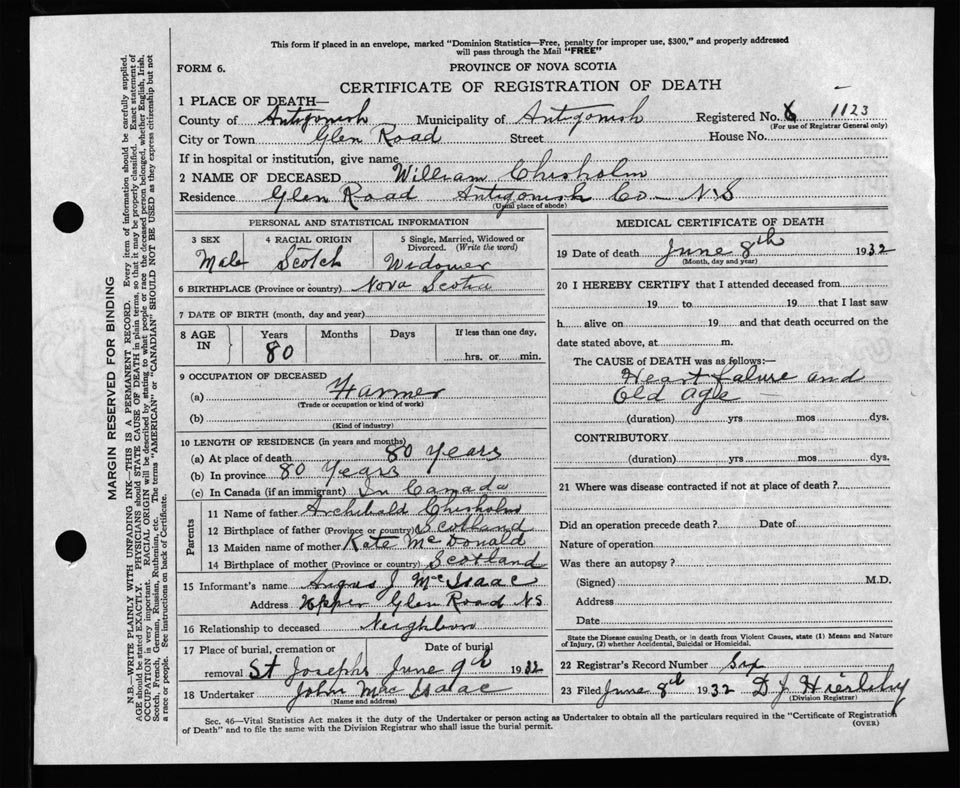 This form if placed in an envelope, marked "Dominion Statistics—Free, penalty for improper use, $300," and properly addressed
will pass through the Mail "FREE"
FORM 6.
PROVINCE OF NOVA SCOTIA
CERTIFICATE OF REGISTRATION OF DEATH
1 PLACE OF DEATH—
County of Antigonish Municipality of Antigonish Registered No. 1123
(For use of Registrar General only)
City or Town Glen Road Street House No.
If in hospital or institution, give name
2 NAME OF DECEASED William Chisholm
Residence Glen Road Antigonish Co — N.S
(Usual place of abode)
PERSONAL AND STATISTICAL INFORMATION
3 SEX 4 RACIAL ORIGIN 5 Single, Married, Widowed or Divorced. (Write the word)
Male Scotch Widower
6 BIRTHPLACE (Province or country) Nova Scotia
7 DATE OF BIRTH (month, day and year)
8 AGE IN Years Months Days If less than one day,
80 hrs. or min.
9 OCCUPATION OF DECEASED
(a) Farmer
(Trade or occupation or kind of work)
(b)
(Kind of industry)
10 LENGTH OF RESIDENCE (in years and months)
(a) At place of death 80 Years
(b) In province 80 Years
(c) In Canada (if an immigrant) In Canada
Parents
11 Name of father Archibald Chisholm
12 Birthplace of father (Province or country) Scotland
13 Maiden name of mother Kate McDonald
14 Birthplace of mother (Province or country) Scotland
15 Informant's name Angus J McIsaac
Address Upper Glen Road NS
16 Relationship to deceased Neighbor
17 Place of burial, cremation or Date of burial
removal St Josephs June 9th 1932
18 Undertaker John MacIsaac
(Name and address)
MEDICAL CERTIFICATE OF DEATH
19 Date of death June 8th 1932
(Month, day and year)
20 I HEREBY CERTIFY that I attended deceased from
19 to 19 that I last saw
h alive on 19 and that death occurred on the
date stated above, at m.
The CAUSE of DEATH was as follows:—
Heart falure and
Old age —
(duration) yrs mos dys.
CONTRIBUTORY
(duration) yrs mos dys.
21 Where was disease contracted if not at place of death?
Did an operation precede death? Date of
Nature of operation
Was there an autopsy?
(Signed) M.D.
Address
Date
State the Disease causing Death, or in death from Violent Causes, state (1) Means and Nature
of Injury, (2) whether Accidental, Suicidal or Homicidal.
22 Registrar's Record Number Six
23 Filed June 8th 1932 D J
(Division Registrar)
Sec. 46—Vital Statistics Act makes it the duty of the Undertaker or person acting as Undertaker to obtain all the particulars required in the "Certificate of Registration
of Death" and to file the same with the Division Registrar who shall issue the burial permit. (OVER)
MARGIN RESERVED FOR BINDING
N.B.—WRITE PLAINLY WITH UNFADING INK—THIS IS A PERMANENT RECORD. Every item of information should be carefully supplied.
AGE should be stated EXACTLY. PHYSICIANS should STATE CAUSE OF DEATH in plain terms, so that it may be properly classified. Exact statement of
OCCUPATION is very important. RACIAL ORIGIN will be described by stating to what people or race the deceased person belonged, whether English, Irish,
Scotch, French, German, Russian, Ruthenian, etc. The terms "AMERICAN" or "CANADIAN" SHOULD NOT BE USED as they express citizenship but not
a race or people. See instructions on back of Certificate.